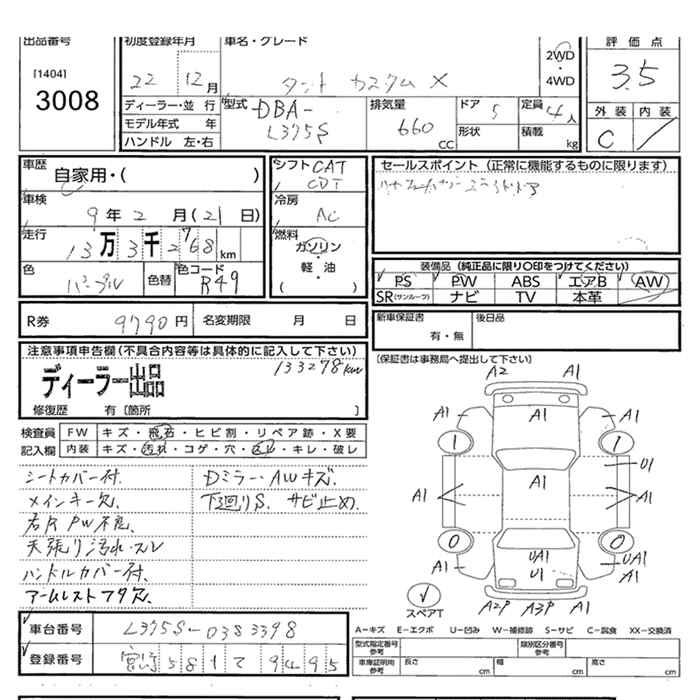 出品番号 初度登録年月 車名・グレード 評価点
[1404] 3008
22 12月 タント カスタム X 2WD・4WD 3.5
ディーラー・並行 型式 DBA-L375S 排気量 660 CC ドア 5 定員 4人 外装 内装
モデル年式 年 形状 積載 kg C
ハンドル 左・右
車歴 自家用・( ) シフト CAT CDT セールスポイント (正常に機能するものに限ります)
車検 9年2月(21日) 冷房 AC
走行 13万3千2 68km 燃料 ガソリン・軽・油 ( )
装備品 (純正品に限り〇印をつけてください)
PS PW ABS エアB AW
SR(サンルーフ) ナビ TV 本革
色 パープル 色替 色コード R49
新車保証書 有・無 後日品
R券 9790円 名変期限 月 日
(保証書は事務局へ提出して下さい)
注意事項申告欄(不具合内容等は具体的に記入して下さい)
133278km
ディーラー出品
修復歴 有 〔箇所 〕
検査員 FW キズ・飛石・ヒビ割・リペア跡・X要
記入欄 内装 キズ・汚れ・コゲ・穴・ ・キレ・破レ
シートカバー付. Dミラー・AWキズ.
メインキー欠. 下廻りS. サビ止め.
右 PW不良.
天張り汚れ・スレ
ハンドルカバー付.
アームレストフタ欠.
A2 A1
A1 A1 A1
1 1
A1 U1
A1 A1 A1
0 0
UA1 UA1
U1 A1
スペアT A2P A3P A1
A-キズ E-エクボ U-凹み W-補修跡 S-サビ C-腐食 XX-交換済
車台番号 L375S-0383398
型式指定番号 参考 類別区分番号 参考
登録番号 宮崎 581 て 9495
車庫証明用 参考 長さ cm 幅 cm 高さ cm